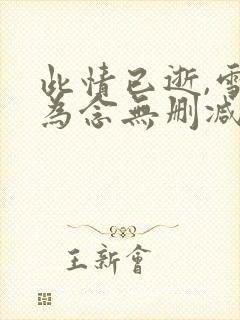 此情已逝,雪
為念無删减
王新會